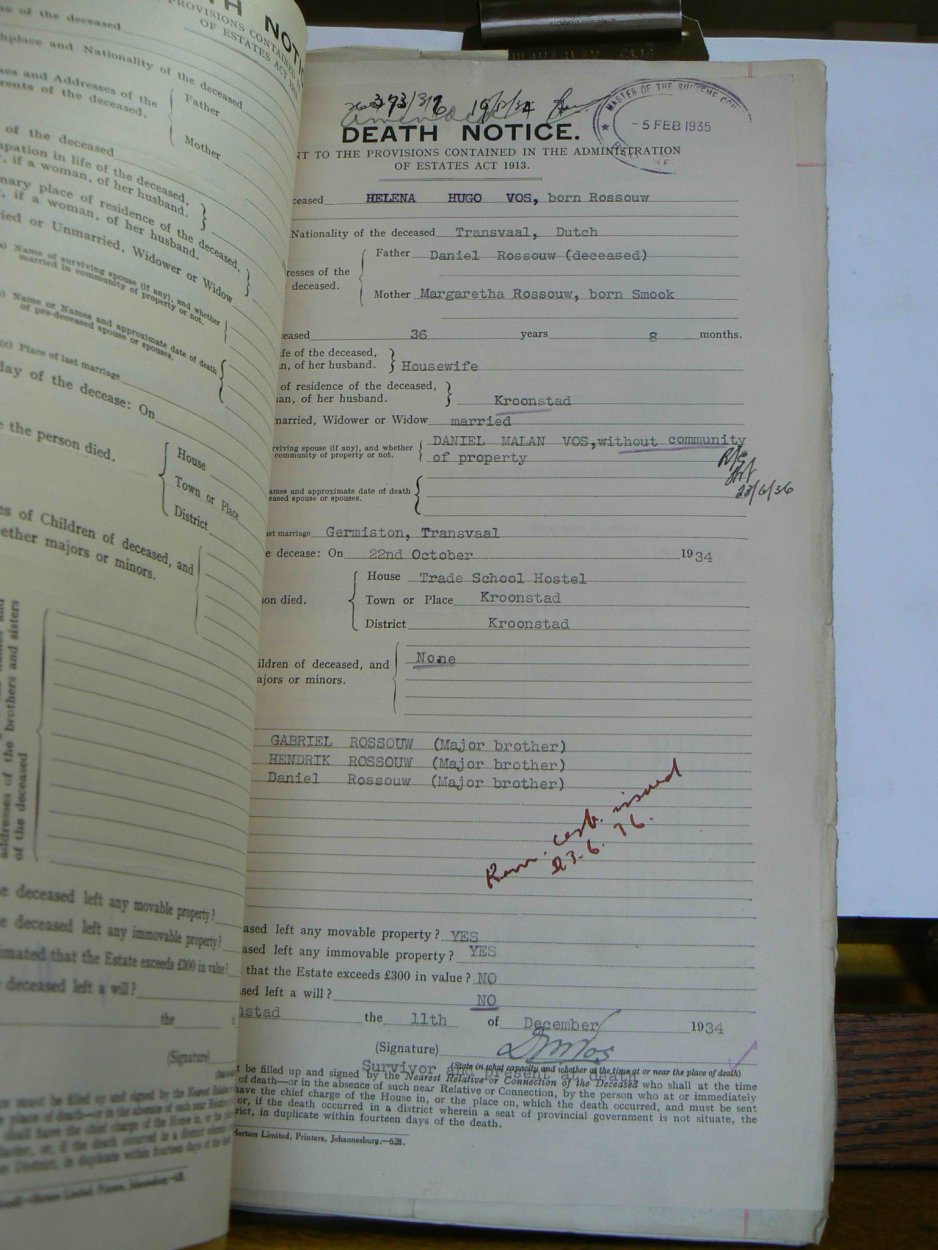 TH NOTI
PROVISIONS CONTAINED IN
OF ESTATES ACT 1913.
of the deceased
hplace and Nationality of the deceased
mes and Addresses of the
rents of the deceased.
Father
Mother
of the deceased
pation in life of the deceased,
if a woman, of her husband.
nary place of residence of the deceased,
, if a woman, of her husband.
ied or Unmarried, Widower or Widow
Name of surviving spouse (if any), and whether
married in community of property or not.
Name or Names and approximate date of death
of pre-deceased spouse or spouses.
(c) Place of last marriage
day of the decease: On
e the person died.
House
Town or Place
District
es of Children of deceased, and
ether majors or minors.
addresses of the brothers and sisters
of the deceased
e deceased left any movable property?
e deceased left any immovable property?
imated that the Estate exceeds £300 in value?
deceased left a will?
the
(Signature)
373/36
MASTER OF THE SUPREME COU
- 5 FEB 1935
DEATH NOTICE.
NT TO THE PROVISIONS CONTAINED IN THE ADMINISTRATION
OF ESTATES ACT 1913.
ceased HELENA HUGO VOS, born Rossouw
Nationality of the deceased Transvaal, Dutch
resses of the
deceased.
Father Daniel Rossouw (deceased)
Mother Margaretha Rossouw, born Smook
eased 36 years 8 months.
ife of the deceased,
n, of her husband. Housewife
of residence of the deceased,
an, of her husband. Kroonstad
married, Widower or Widow married
rviving spouse (if any), and whether
community of property or not.
DANIEL MALAN VOS, without community
of property
23/6/36
ames and approximate date of death
eased spouse or spouses.
ast marriage Germiston, Transvaal
e decease: On 22nd October 1934
son died.
House Trade School Hostel
Town or Place Kroonstad
District Kroonstad
ildren of deceased, and
ajors or minors.
None
GABRIEL ROSSOUW (Major brother)
HENDRIK ROSSOUW (Major brother)
Daniel Rossouw (Major brother)
cert. issued
23.6.36.
ased left any movable property? YES
ased left any immovable property? YES
that the Estate exceeds £300 in value? NO
sed left a will? NO
nstad the 11th of December 1934
(Signature) DMVos
Survivor and present at death
(State in what capacity and whether at the time at or near the place of death)
t be filled up and signed by the Nearest Relative or Connection of the Deceased who shall at the time
of death—or in the absence of such near Relative or Connection, by the person who at or immediately
have the chief charge of the House in, or the place on, which the death occurred, and must be sent
or, if the death occurred in a district wherein a seat of provincial government is not situate, the
rict, in duplicate within fourteen days of the death.
Hortors Limited, Printers, Johannesburg.—628.